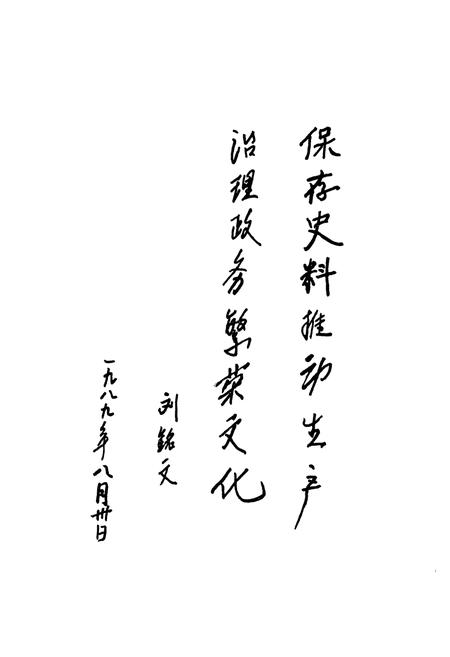 保存史料推动生产
治理政务繁荣文化
刘铭文
一九八九年八月卅日